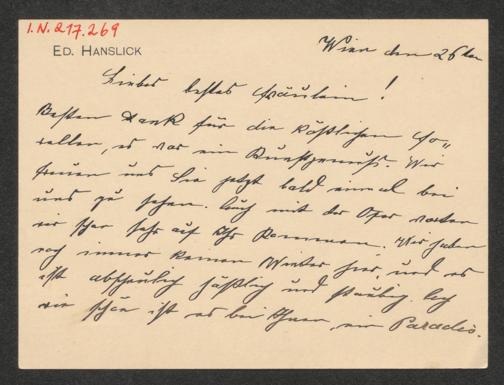 I.N. 217.269
ED. HANSLICK
Wien den 26ten
Liebes bestes Fräulein!
Besten Dank für die köstlichen Fo-
rellen, es war ein Kunstgenuß. Wir
freuen uns Sie jetzt bald einmal bei
uns zu sehen. Auch mit der Oper warten
wir schon sehr auf Ihr Kommen. Wir haben
noch immer keinen Winter hier, und es
ist abscheulich häßlich und staubig. Ach
wie schön ist es bei Ihnen, ein Paradis.